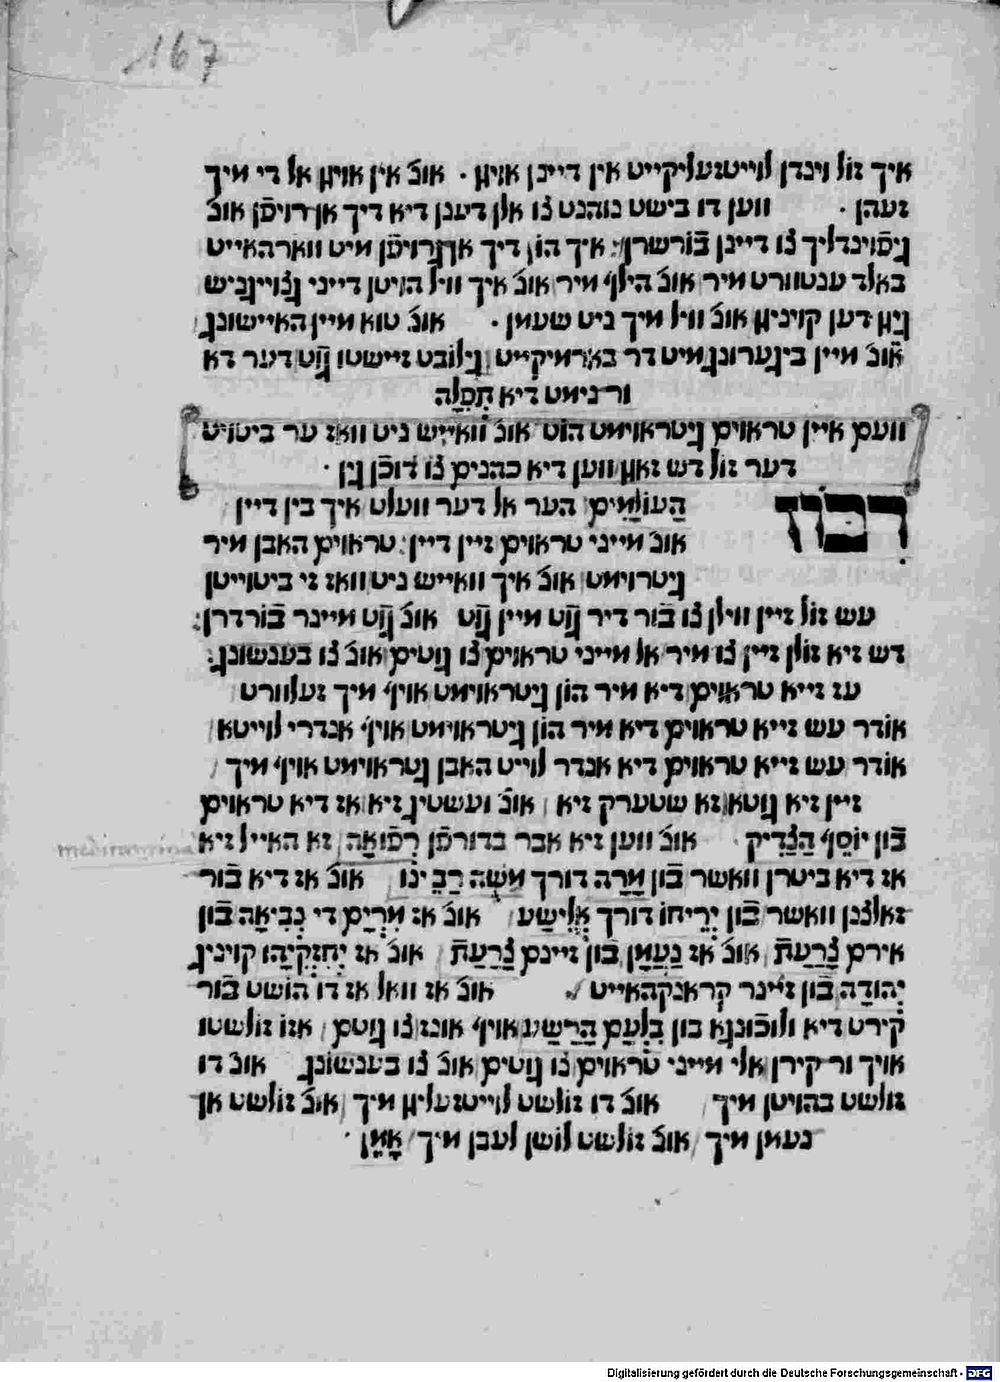 167
איך זול וינדן לוייטזעליקייט אין דיינן אויגן . אונ' אין אויגן אל די מיך
זעהן . ווען דו בישט נוהנט צו אלן דענן דיא דיך אן רויפֿן אונ'
גיפֿוינדליך צו דיינן בֿורשרן: איך הון דיך אן גרויפֿן מיט ווארהאייט
באלד ענטוורט מיר אונ' הילף מיר אונ' איך וויל הויטן דייני גצוייגניש
גיגן דען קויניגן אונ' וויל מיך ניט שעמן . אונ' טוא מיין האיישונג
אונ' מיין ביגערונג מיט דר בארמיקייט גילובט זיישטו גוט דער דא
ור נימט דיא תְפִלָה
וועם איין טראוים גיטראוימט הוט אונ' ווֹאייש ניט וואז ער ביטויט
דער זול דש זאגן ווען דיא כהנים צו דוכֿן גין .
רִבּוֹן הַעוֹלָמִים הער אל דער וועלט איך בין דיין
אונ' מייני טראוים זיין דיין: טראוים האבן מיר
גיטרוימט אונ' איך ווֹאייש ניט וואז זי ביטוייטן
עש זול זיין ווילן צו בֿור דיר גוט מיין גוט אונ' גוט מיינר בֿורדרן:
דש זיא זולן זיין צו מיר אל מייני טראוים צו גוטים אונ' צו בענשונג:
עז זייא טראוים דיא מיר הון גיטראוימט אויף מיך זעלוורט
אודר עש זייא טראוים דיא מיר הון גיטראוימט אויף אנדרי לוייטא
אודר עש זייא טראוים דיא אנדר לוייט האבן גטראוימט אויף מיך
זיין זיא גוטא זא שטערק זיא אונ' ועשטיג זיא אז דיא טראוים
בֿון יוֹסֵף הַצַדִיק אונ' ווען זיא אבר בדורפֿן רְפוּאָה זא האייל זיא
medicamina
אז דיא ביטרן וואשר בֿון מָרָה דורך משֶה רַבֵינוּ אונ' אז דיא בור
זאלצנן וואשר בֿון יְרֵיחוֹ דורך אֱלִישָע אונ' אז מִרְיָם די נְבִיאָה בֿון
אירם צָרַעַת אונ' אז נַעֲמָן בֿון זיינם צָרַעַת אונ' אז יְחִזְקִיָהוּ קויניג
יְהוּדָה בֿון זיינר קראנקהאייט אונ' אז וואל אז דו הושט בֿור
קירט דיא ולוכֿונגא בון בִלְעָם הָרָשָע אויף אונז צו גוטם אזו זולשטו
אויך ור קירן אלי מייני טראוים צו גוטים אונ' צו בענשונג אונ' דו
זולשט בהויטן מיך אונ' דו זולשט לוייטזעליגן מיך אונ' זולשט אן
נעמן מיך אונ' זולשט לושן לעבן מיך אָמֵן .
Digitalisierung gefördert durch die Deutsche Forschungsgemeinschaft - DFG